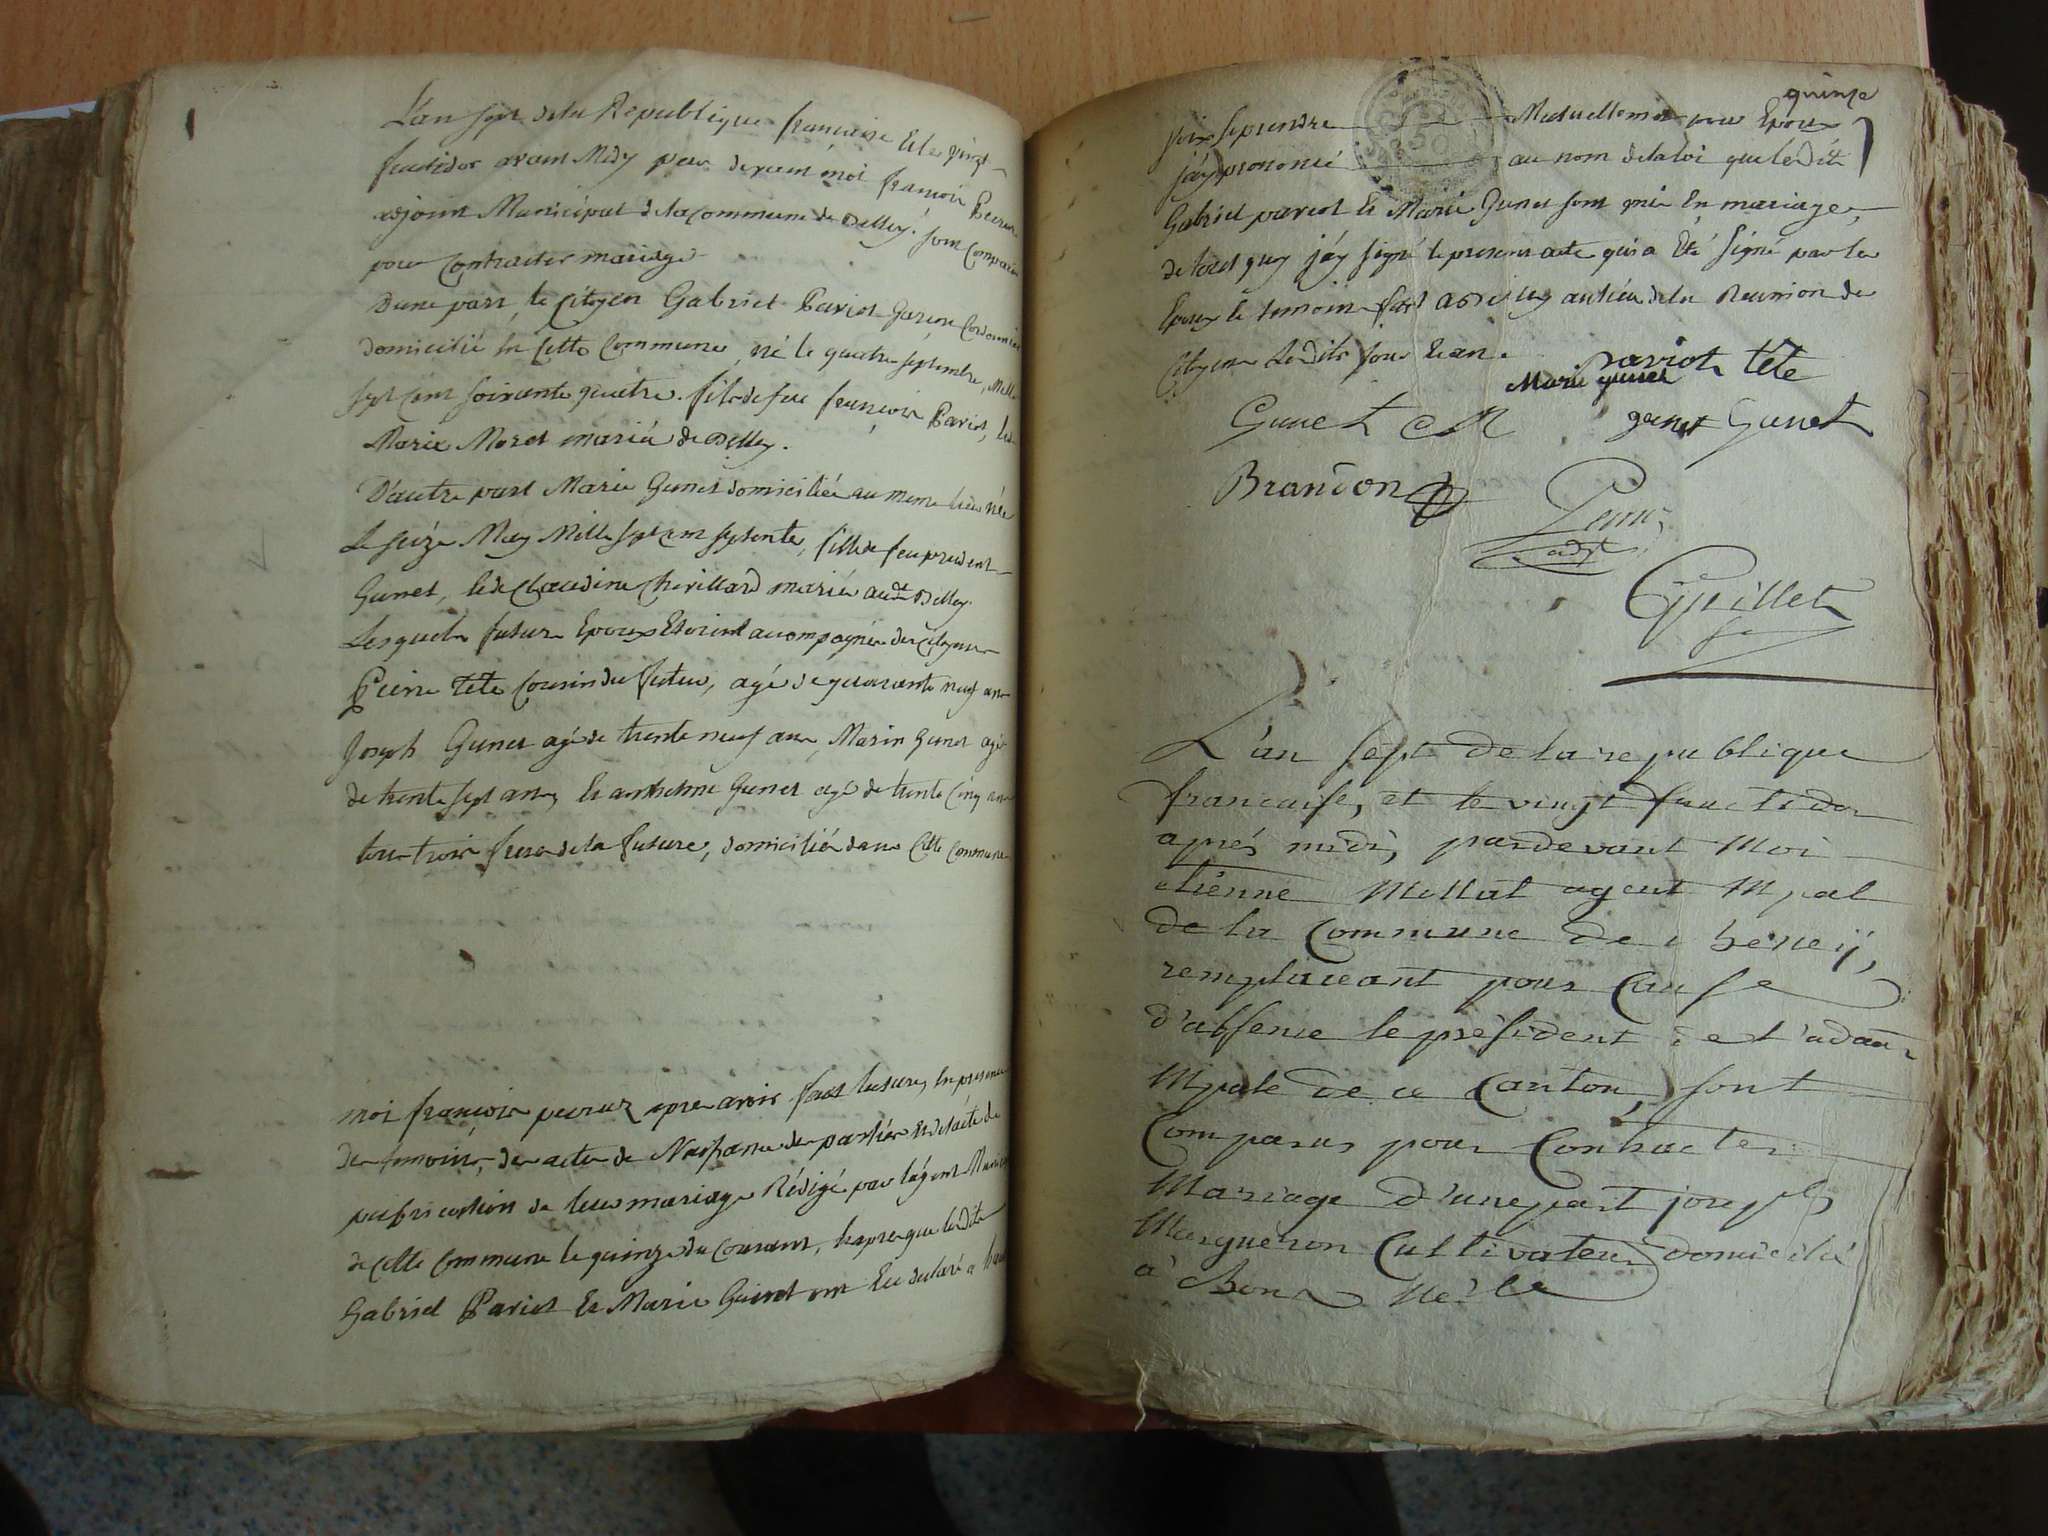 L'an sept de la Republique francaise Et le vingt
fructidor avant Midy par devant moi françois
adjoint Municipal de la commune de Belley. sont Comparu
pour Contracter mariage
D'une part, le Citoyen Gabriel Pariot Garcon Cordonnier
domicilié En Cette Commune, né le quatre septembre, Mille
sept Cent soixante quatre. fils de feu françois Pariot, &
Marie Moret marié de Belley.
D'autre part Marie Gunet domiciliée au meme lieu née
Le seize May Mille sept cent septente, fille de feu prudent
Gunet, & de Claudine Chevillard marié aud. Belley.
Lesquels futurs Epoux Etoient accompagnés des Citoyens
Pierre Tete Cousin du futur, agé de quarante neuf ans
Joseph Gunet agé de trente neuf ans, Marin Gunet agé
de trente sept ans, Et anthelme Gunet agé de trente Cinq ans
tous trois freres de la future, domiciliés dans Cette Commune
moi françois apres avoir fait lecture, En presence
des temoins, des actes de Naissance des parties Et de l'acte de
publication de leur mariage Rédigé par l'agent Municip
de Cette Commune le quinze du Courant, & apres que lesdits
Gabriel Pariot Et Marie Gunet ont Eu declaré a haute
quinze
voix se prendre Mutuellement pour Epoux
j'ay prononcé au nom de la loi que lesdits
Gabriel pariot Et Marie Gunet sont unis En mariage,
de tout quoy j'ay signé le present acte qui a Eté signé par les
Epoux & temoins fait a Belley au lieu de la Reunion des
Citoyens lesdits jour & an.
pariot tete
Marie gunet
Gunet M
gunet Gunet
Brandon
adjt
Guillet
L'an sept de la republique
francaise, et le vingt fructidor
après midi, pardevant Moi
etienne Mollat agent Mpal
de la Commune de
remplacant pour Cause
d'absence le président de l'adaon
Mpale de ce Canton, sont
Comparus pour Contracter
Mariage d'une part joseph
Margueron Cultivateur domicilié
à Bons Né le